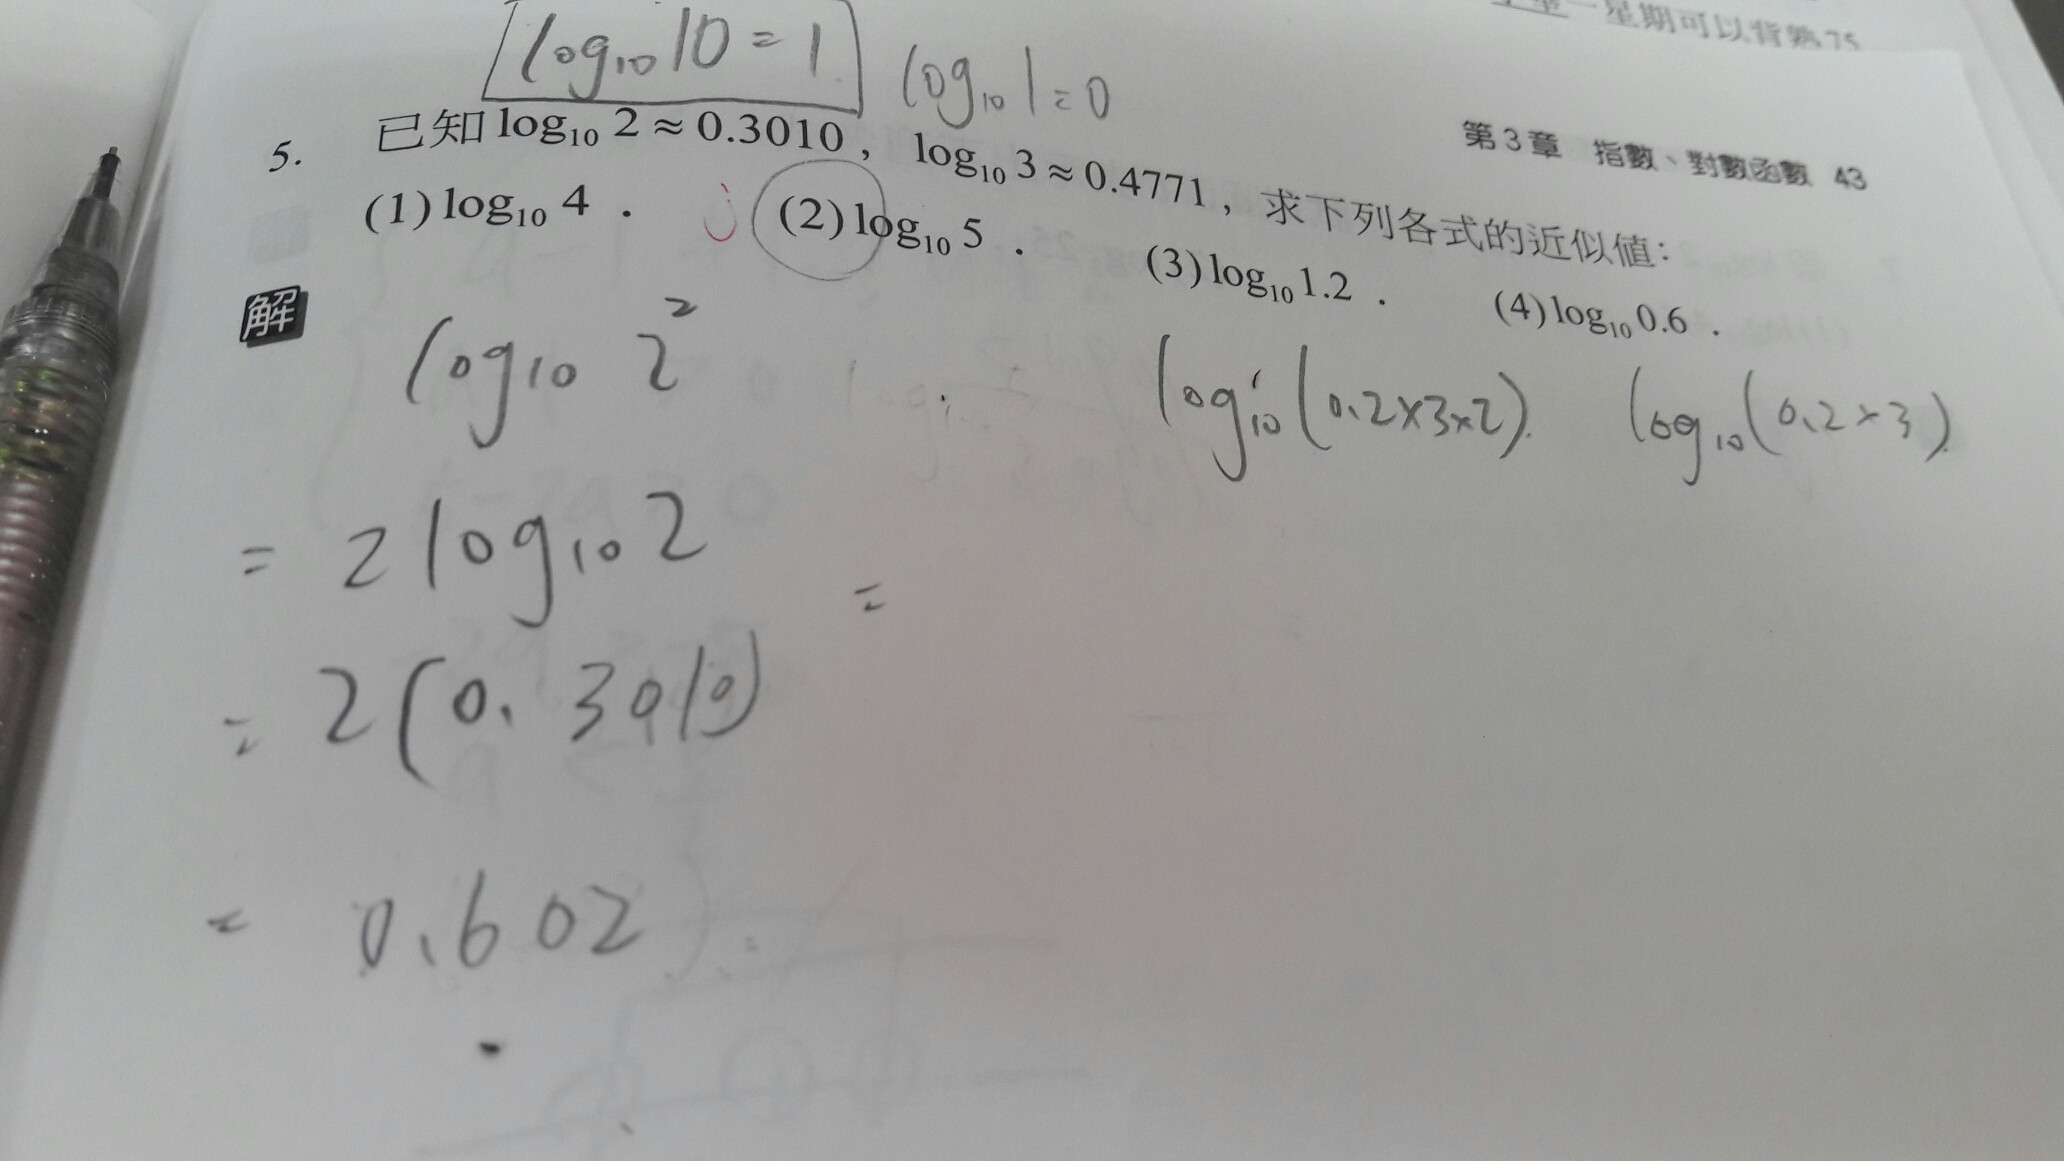 一星期可以背熟75
log₁₀10=1 log₁₀1=0
第3章 指數、對數函數 43
5. 已知log₁₀2≈0.3010，log₁₀3≈0.4771，求下列各式的近似值：
(1)log₁₀4． (2)log₁₀5． (3)log₁₀1.2． (4)log₁₀0.6．
解
log₁₀2² log₁₀(0.2×3×2) log₁₀(0.2×3)
= 2log₁₀2 =
= 2(0.3010)
= 0.602